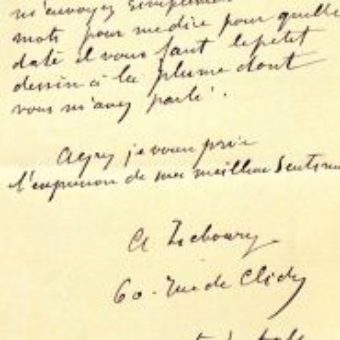 m'envoyez simplement
mots pour me dire pour quelle
date il vous faut le petit
dessin à la plume dont
vous m'avez parlé.
Agréez je vous prie
l'expression de mes meilleurs sentime
A Lebourg
60. rue de Clichy